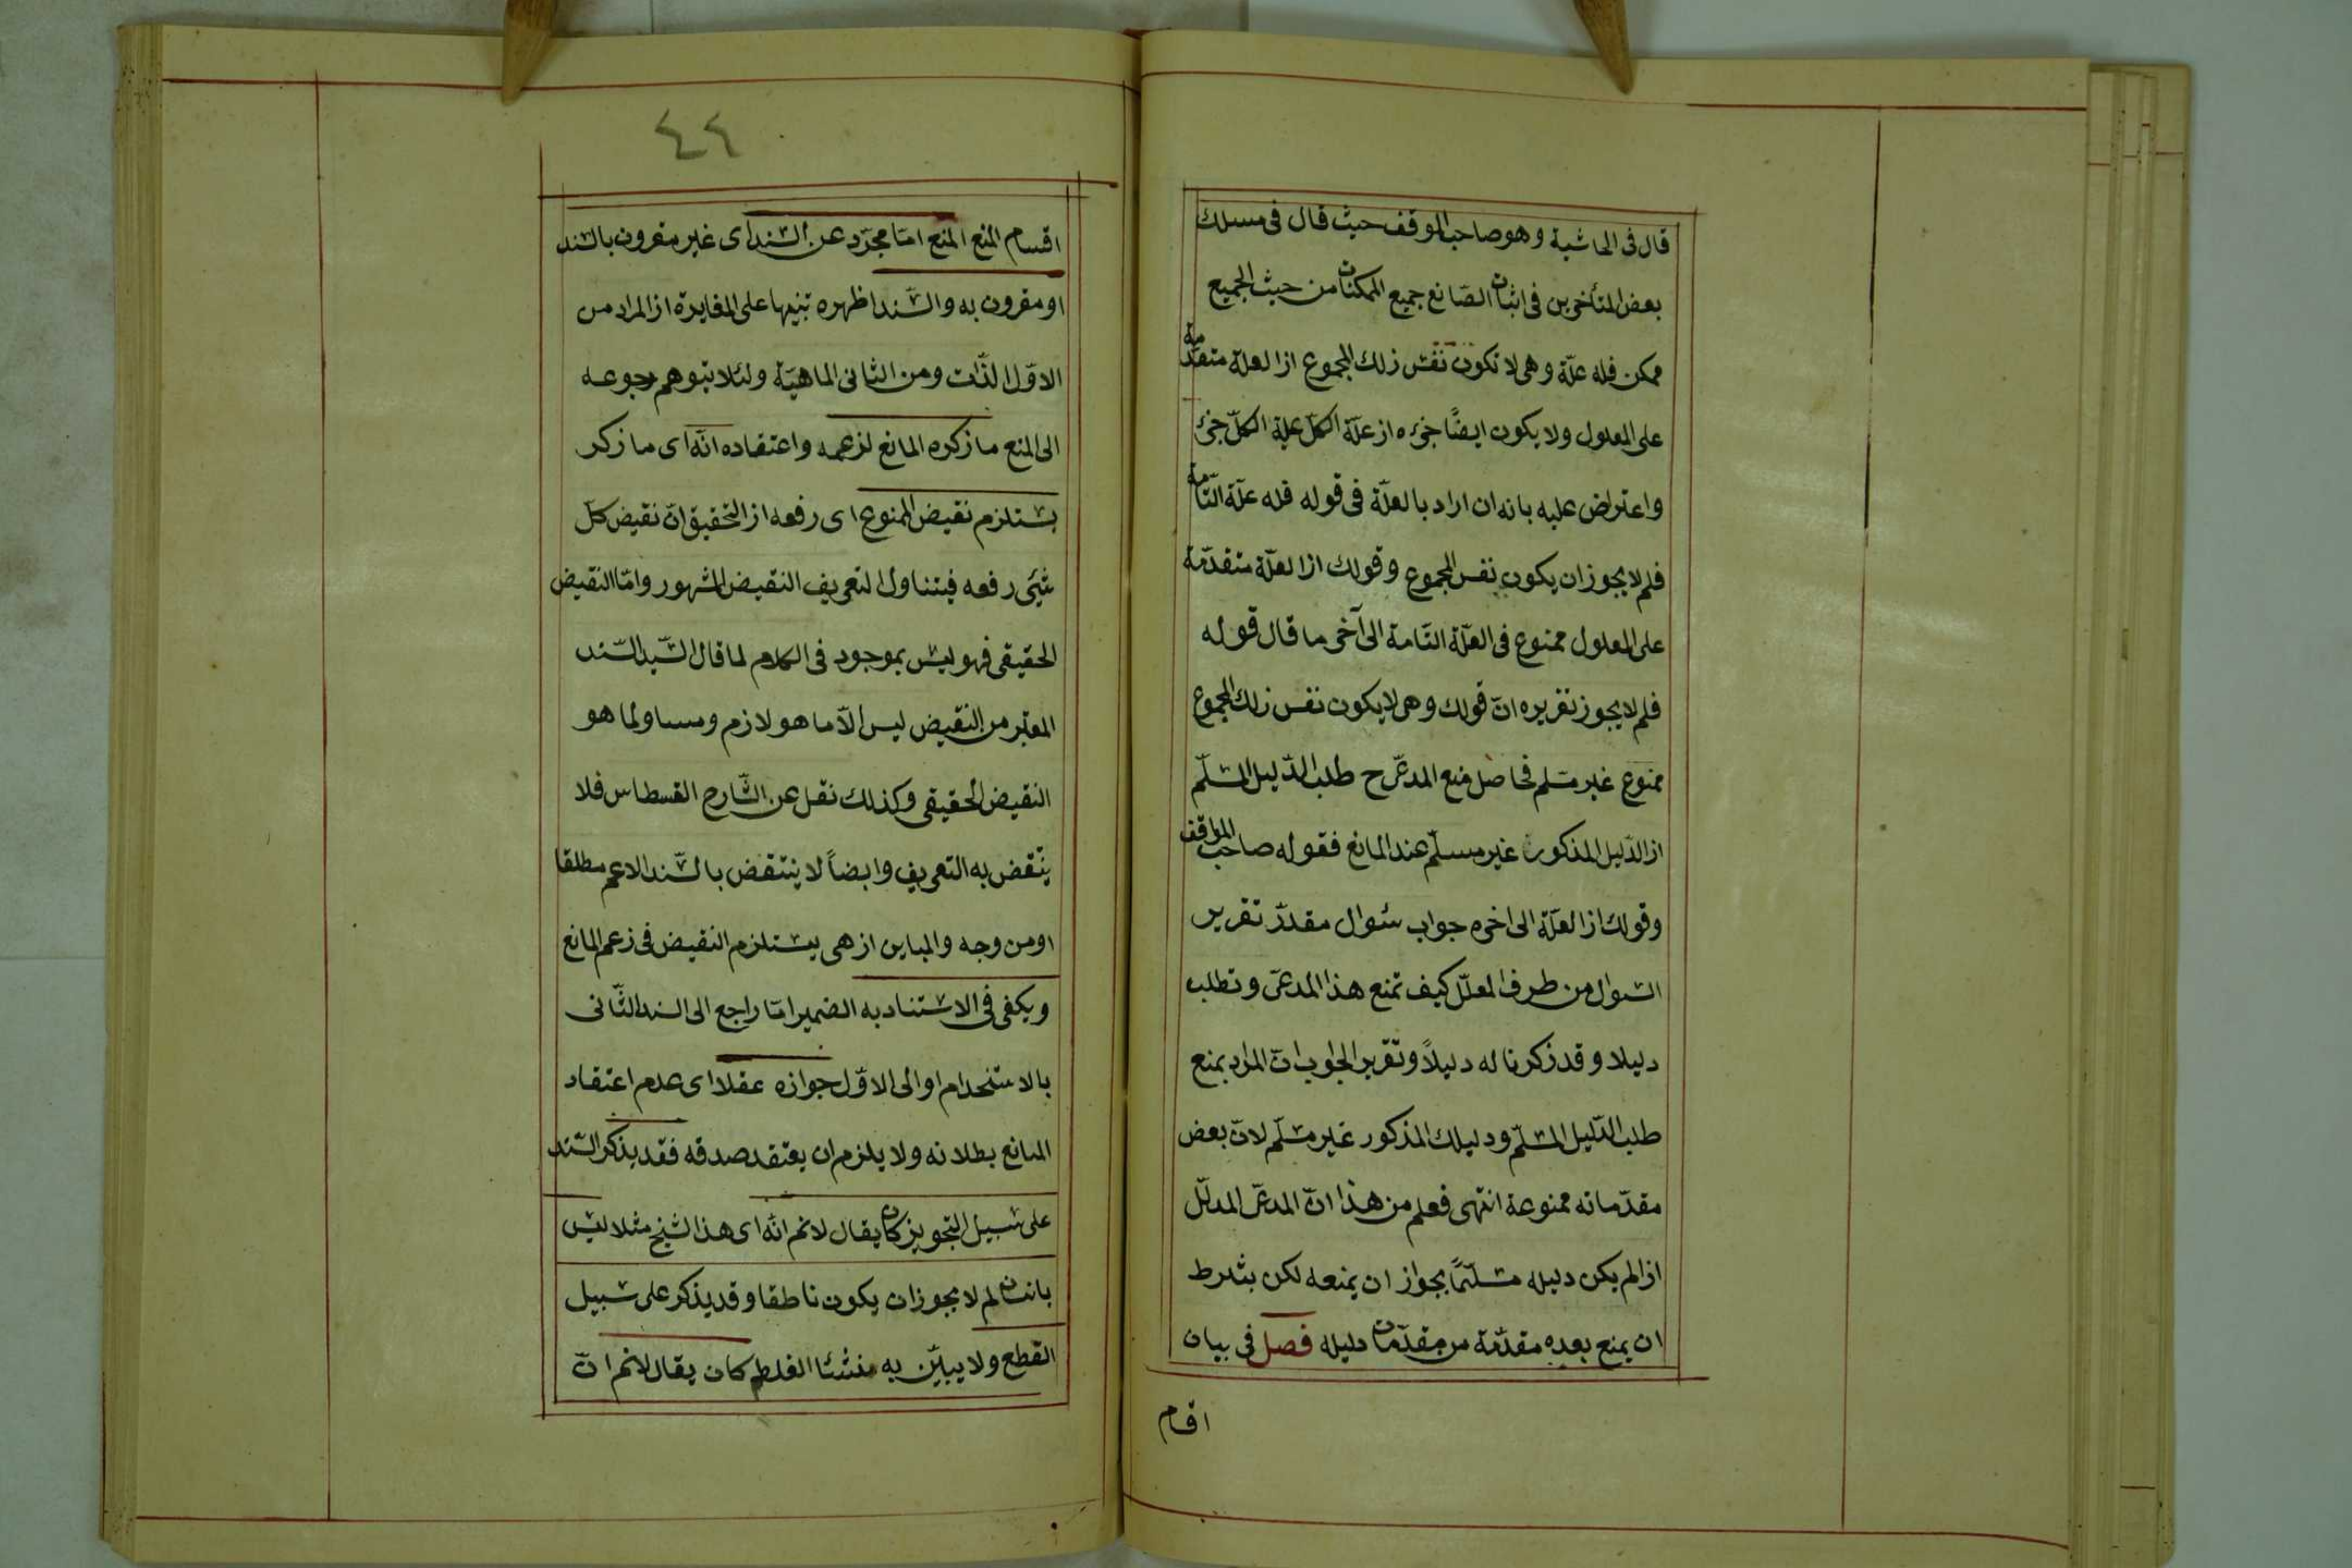 قال فى الحاشية وهو صاحب الموقف حيث قال فى مسلك
بعض المتأخرين فى اثبات الصّانع جميع الممكنات من حيث الجميع
ممكن فله علّة وهى لا تكون نفس ذلك المجموع اذ العلة متقدّمة
على المعلول ولا يكون ايضًا جزءه اذ علّة الكلّ علة الكلّ جزئ
واعتراض عليه بانه ان اراد بالعلّة فى قوله فله علّة التّامة
فلم لا يجوز ان يكون نفس المجموع وقولك اذ العلّة متقدّمة
على المعلول ممنوع فى العلّة التّامة الى آخر ما قال قوله
فلم لا يجوز تقريره انّ قولك وهى لا يكون نفس ذلك المجموع
ممنوع غير مسلم فحاصل منع المدعى ح طلب الدّليل المسلّم
اذ الدّليل المذكور غير مسلّم عند المانع فقوله صاحب المواقف
وقولك اذ العلّة الى اخره جواب سئوال مقدّر تقرير
السّوال من طرف المعلّل كيف تمنع هذا المدعى وتطلب
دليلا وقد ذكرنا له دليلاً وتقرير الجواب انّ المراد بمنع
طلب الدّليل المسلّم ودليلك المذكور غير مسلّم لانّ بعض
مقدّماته ممنوعة انتهى فعلم من هذا انّ المدعى المدلّل
اذ الم يكن دليله مسلّمًا بجواز ان يمنعه لكن بشرط
ان يمنع بعده مقدّمة من مقدّمات دليله فصل فى بيان
اقسام
٤٤
اقسام المنع المنع امّا مجرّد عن السّند اى غير مقرون بالسّند
او مقرون به والسّند اظهره تنبيها على المغايرة اذ المراد من
الاوّل الذّات ومن الثانى الماهيّة ولئلا يتوهم رجوعه
الى المنع ما ذكره المانع لزعمه واعتقاده انّه اى ما ذكر
يستلزم نقيض الممنوع اى رفعه اذ التحقيق انّ نقيض كلّ
شيئ رفعه فيتناول التعريف النقيض المشهور وامّا النقيض
الحقيقى فهو ليس بموجود فى الكلام لما قال السّيد السّند
المعتبر من النقيض ليس الّا ما هو لازم ومساو لما هو
النقيض الحقيقى وكذلك نقل عن الشّارح القسطاس فلا
ينتقض به التعريف وايضاً لا ينتقض بالسّند الاعم مطلقا
او من وجه والمباين اذ هى يستلزم النقيض فى زعم المانع
ويكفى فى الاستناد به الضمير امّا راجع الى السند الثّانى
بالاستخدام او الى الاوّل جوازه عقلا اى عدم اعتقاد
المانع بطلانه ولا يلزم ان يعتقد صدقه فقد يذكر السّند
على سبيل التجويز كان يقال لانم انّه اى هذا الشبح مثلا ليس
بانسان لم لا يجوز ان يكون ناطقا وقد يذكر على سبيل
القطع ولا يبيّن به منشئا الغلط كان يقال لانم انّ